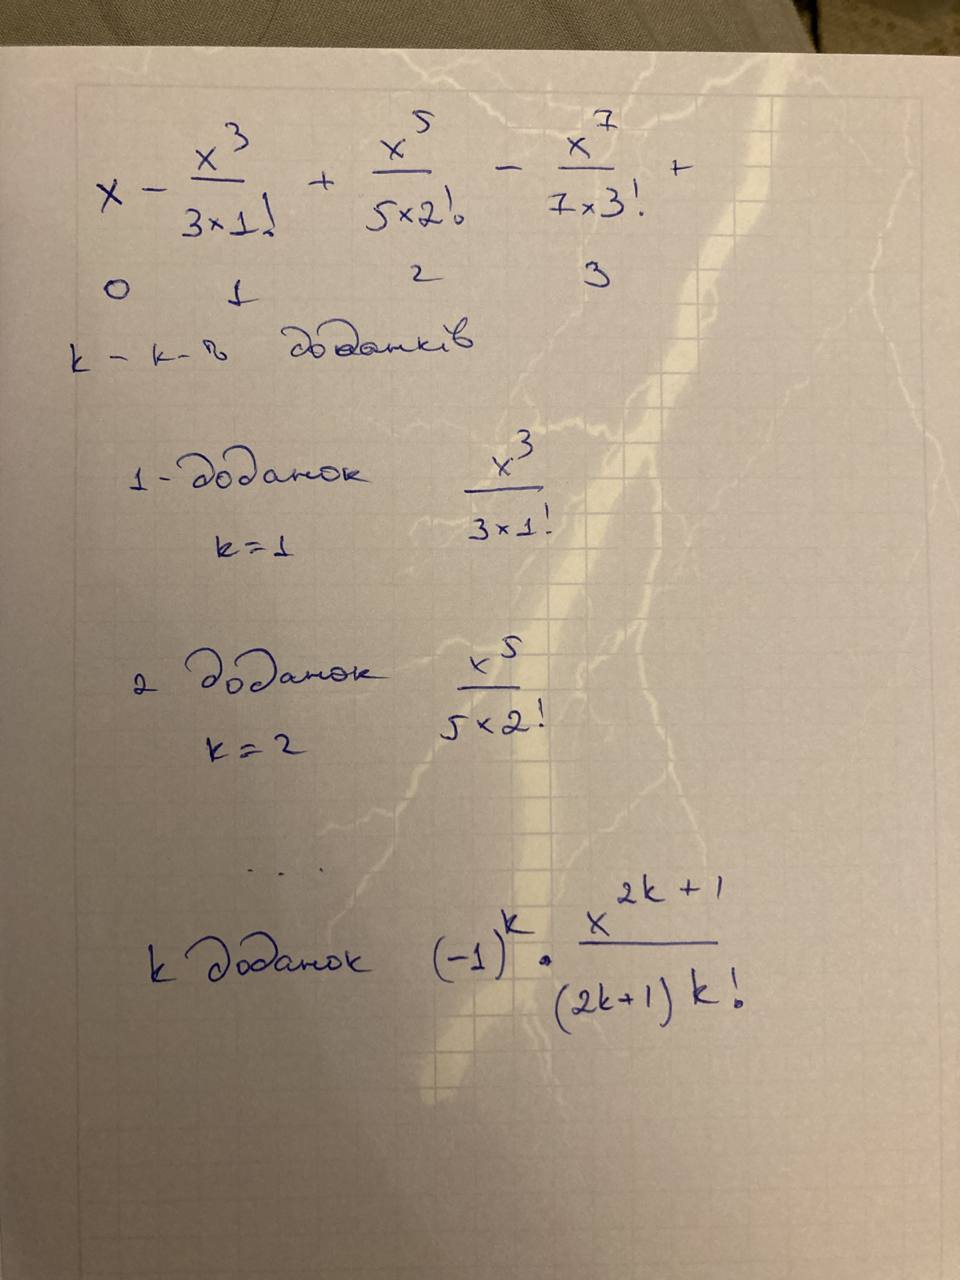 x - x^3/(3×1!) + x^5/(5×2!) - x^7/(7×3!) +
0 1 2 3
k - к-ть доданків
1 - доданок x^3/(3×1!)
k = 1
2 доданок x^5/(5×2!)
k = 2
. . . .
k доданок (-1)^k · x^(2k+1)/((2k+1) k!)